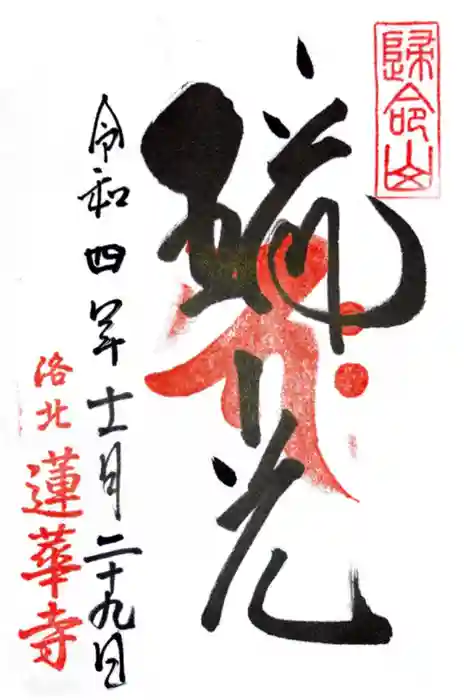 歸命山
光
令和四年十一月二十九日
洛北
蓮華寺